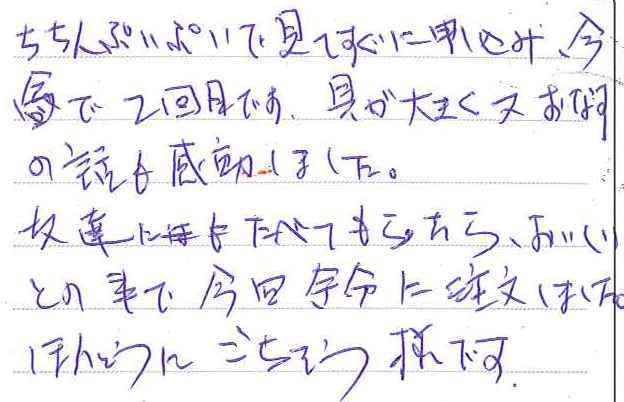 ちちんぷいぷいで見てすぐに申し込み、今
回で2回目です。具が大きく又お
の話も感動しました。
友達にもたべてもらったら、おいしい
との事で今回余分に注文しました。
ほんとうにごちそう様です。